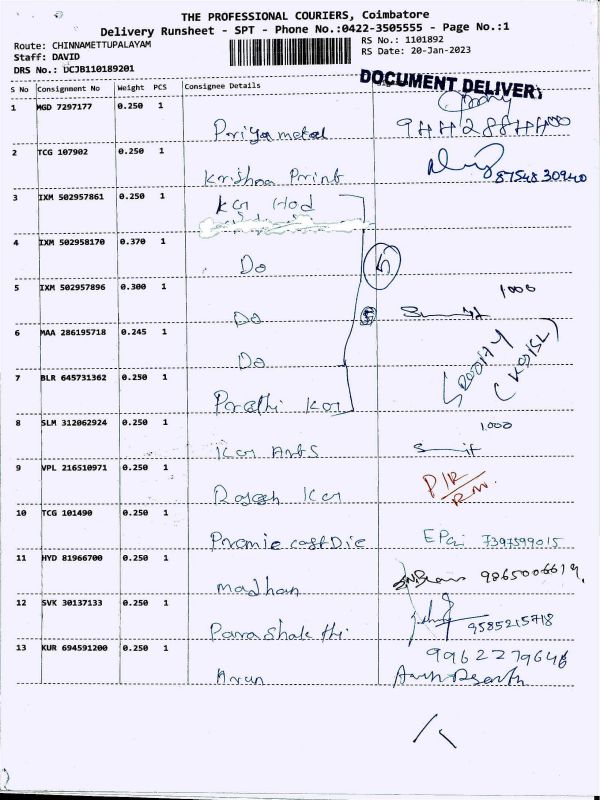 THE PROFESSIONAL COURIERS, Coimbatore
Delivery Runsheet - SPT - Phone No.:0422-3505555 - Page No.:1
Route: CHINNAMETTUPALAYAM
RS No.: 1101892
Staff: DAVID
RS Date: 20-Jan-2023
DRS No.: DCJB110189201
DOCUMENT DELIVERY
S No Consignment No Weight PCS Consignee Details
1 MGD 7297177 0.250 1
Priya metal
2 TCG 107902 0.250 1
Krishna Print 87548 30940
3 IXM 502957861 0.250 1
KCT Hod
4 IXM 502958170 0.370 1
Do 5
5 IXM 502957896 0.300 1
1000
Do
6 MAA 286195718 0.245 1
Do
7 BLR 645731362 0.250 1
8 SLM 312062924 0.250 1
1000
Arts
9 VPL 216510971 0.250 1
Rajesh
10 TCG 101490 0.250 1
Promie cast Die 7397599015
11 HYD 81966700 0.250 1
madhan 9865006619
12 SVK 30137133 0.250 1
Parashakthi 9585215718
13 KUR 694591200 0.250 1
9962279646
Arun